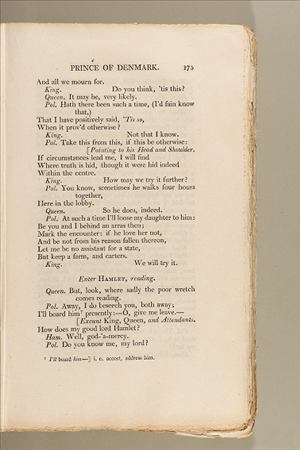 PRINCE OF DENMARK. 175
And all we mourn for.
King. Do you think, 'tis this?
Queen. It may be, very likely.
Pol. Hath there been such a time, (I'd fain know
that,)
That I have positively said, 'Tis so,
When it prov'd otherwise?
King. Not that I know.
Pol. Take this from this, if this be otherwise:
[Pointing to his Head and Shoulder.
If circumstances lead me, I will find
Where truth is hid, though it were hid indeed
Within the centre.
King. How may we try it further?
Pol. You know, sometimes he walks four hours
together,
Here in the lobby.
Queen. So he does, indeed.
Pol. At such a time I'll loose my daughter to him:
Be you and I behind an arras then;
Mark the encounter: if he love her not,
And be not from his reason fallen thereon,
Let me be no assistant for a state,
But keep a farm, and carters.
King. We will try it.
Enter HAMLET, reading.
Queen. But, look, where sadly the poor wretch
comes reading.
Pol. Away, I do beseech you, both away;
I'll board him¹ presently:—O, give me leave.—
[Exeunt King, Queen, and Attendants.
How does my good lord Hamlet?
Ham. Well, god-'a-mercy.
Pol. Do you know me, my lord?
¹ I'll board him—] i. e. accost, address him.